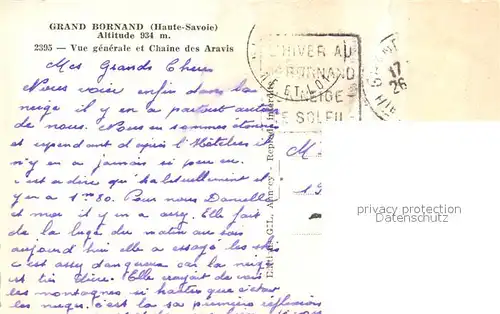 GRAND BORNAND (Haute-Savoie)
Altitude 934 m.
2395 - Vue générale et Chaîne des Aravis
Mes Grands Chers
Nous voici enfin dans la
neige il y en a partout autour
de nous. Nous en sommes étonnés
et cependant d'après l'hôtelier il
n'y en a jamais si peu eu.
c'est à dire qu'habituellement il
y en a 1m80. Pour nous Danielle
et moi il y en a assez. Elle fait
de la luge du matin au soir
aujourd'hui elle a essayé les skis
c'est assez dangereux car la neige
est très dure. Elle croyait de voir
les montagnes si hautes que c'était
les nuages. c'est là sa première réflexion
L'HIVER AU
BORNAND
NEIGE
ET SOLEIL
ET-LOT
17
26
M
19
Edit. Gil, Annecy - Reprod. interdite
copyright-protected
Datenschutz